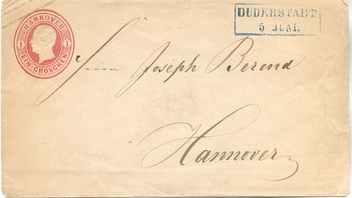 HANNOVER
1 1
EIN GROSCHEN
DUDERSTADT
5 JUNI.
Herrn Joseph Berend
Hannover